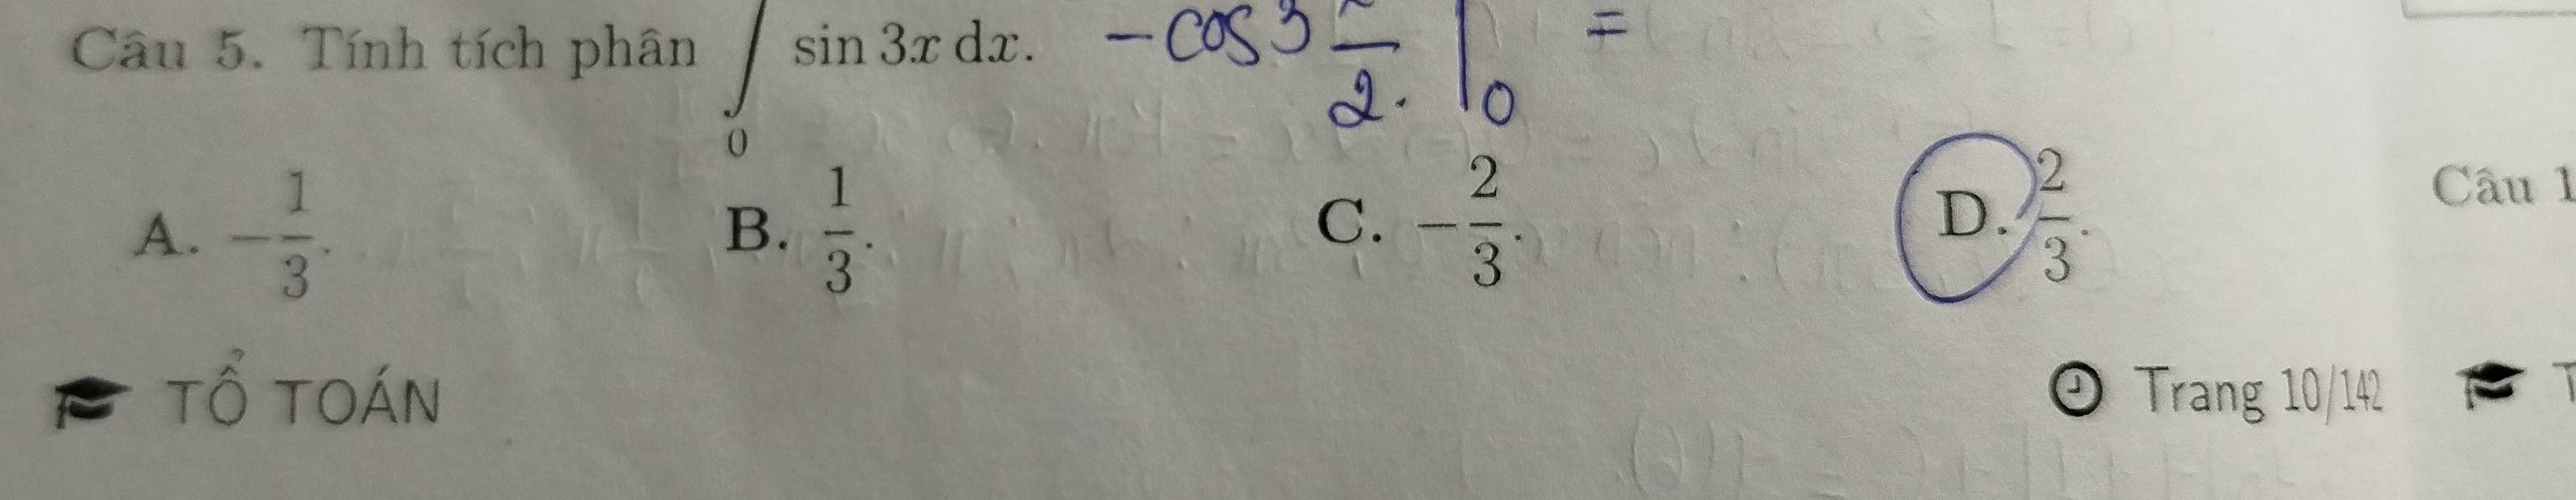 Câu 5. Tính tích phân ∫ sin 3x dx. -cos3 /2. |0 =
0
A. -1/3. B. 1/3. C. -2/3. D. 2/3.
Câu 1
TỔ TOÁN Trang 10/142